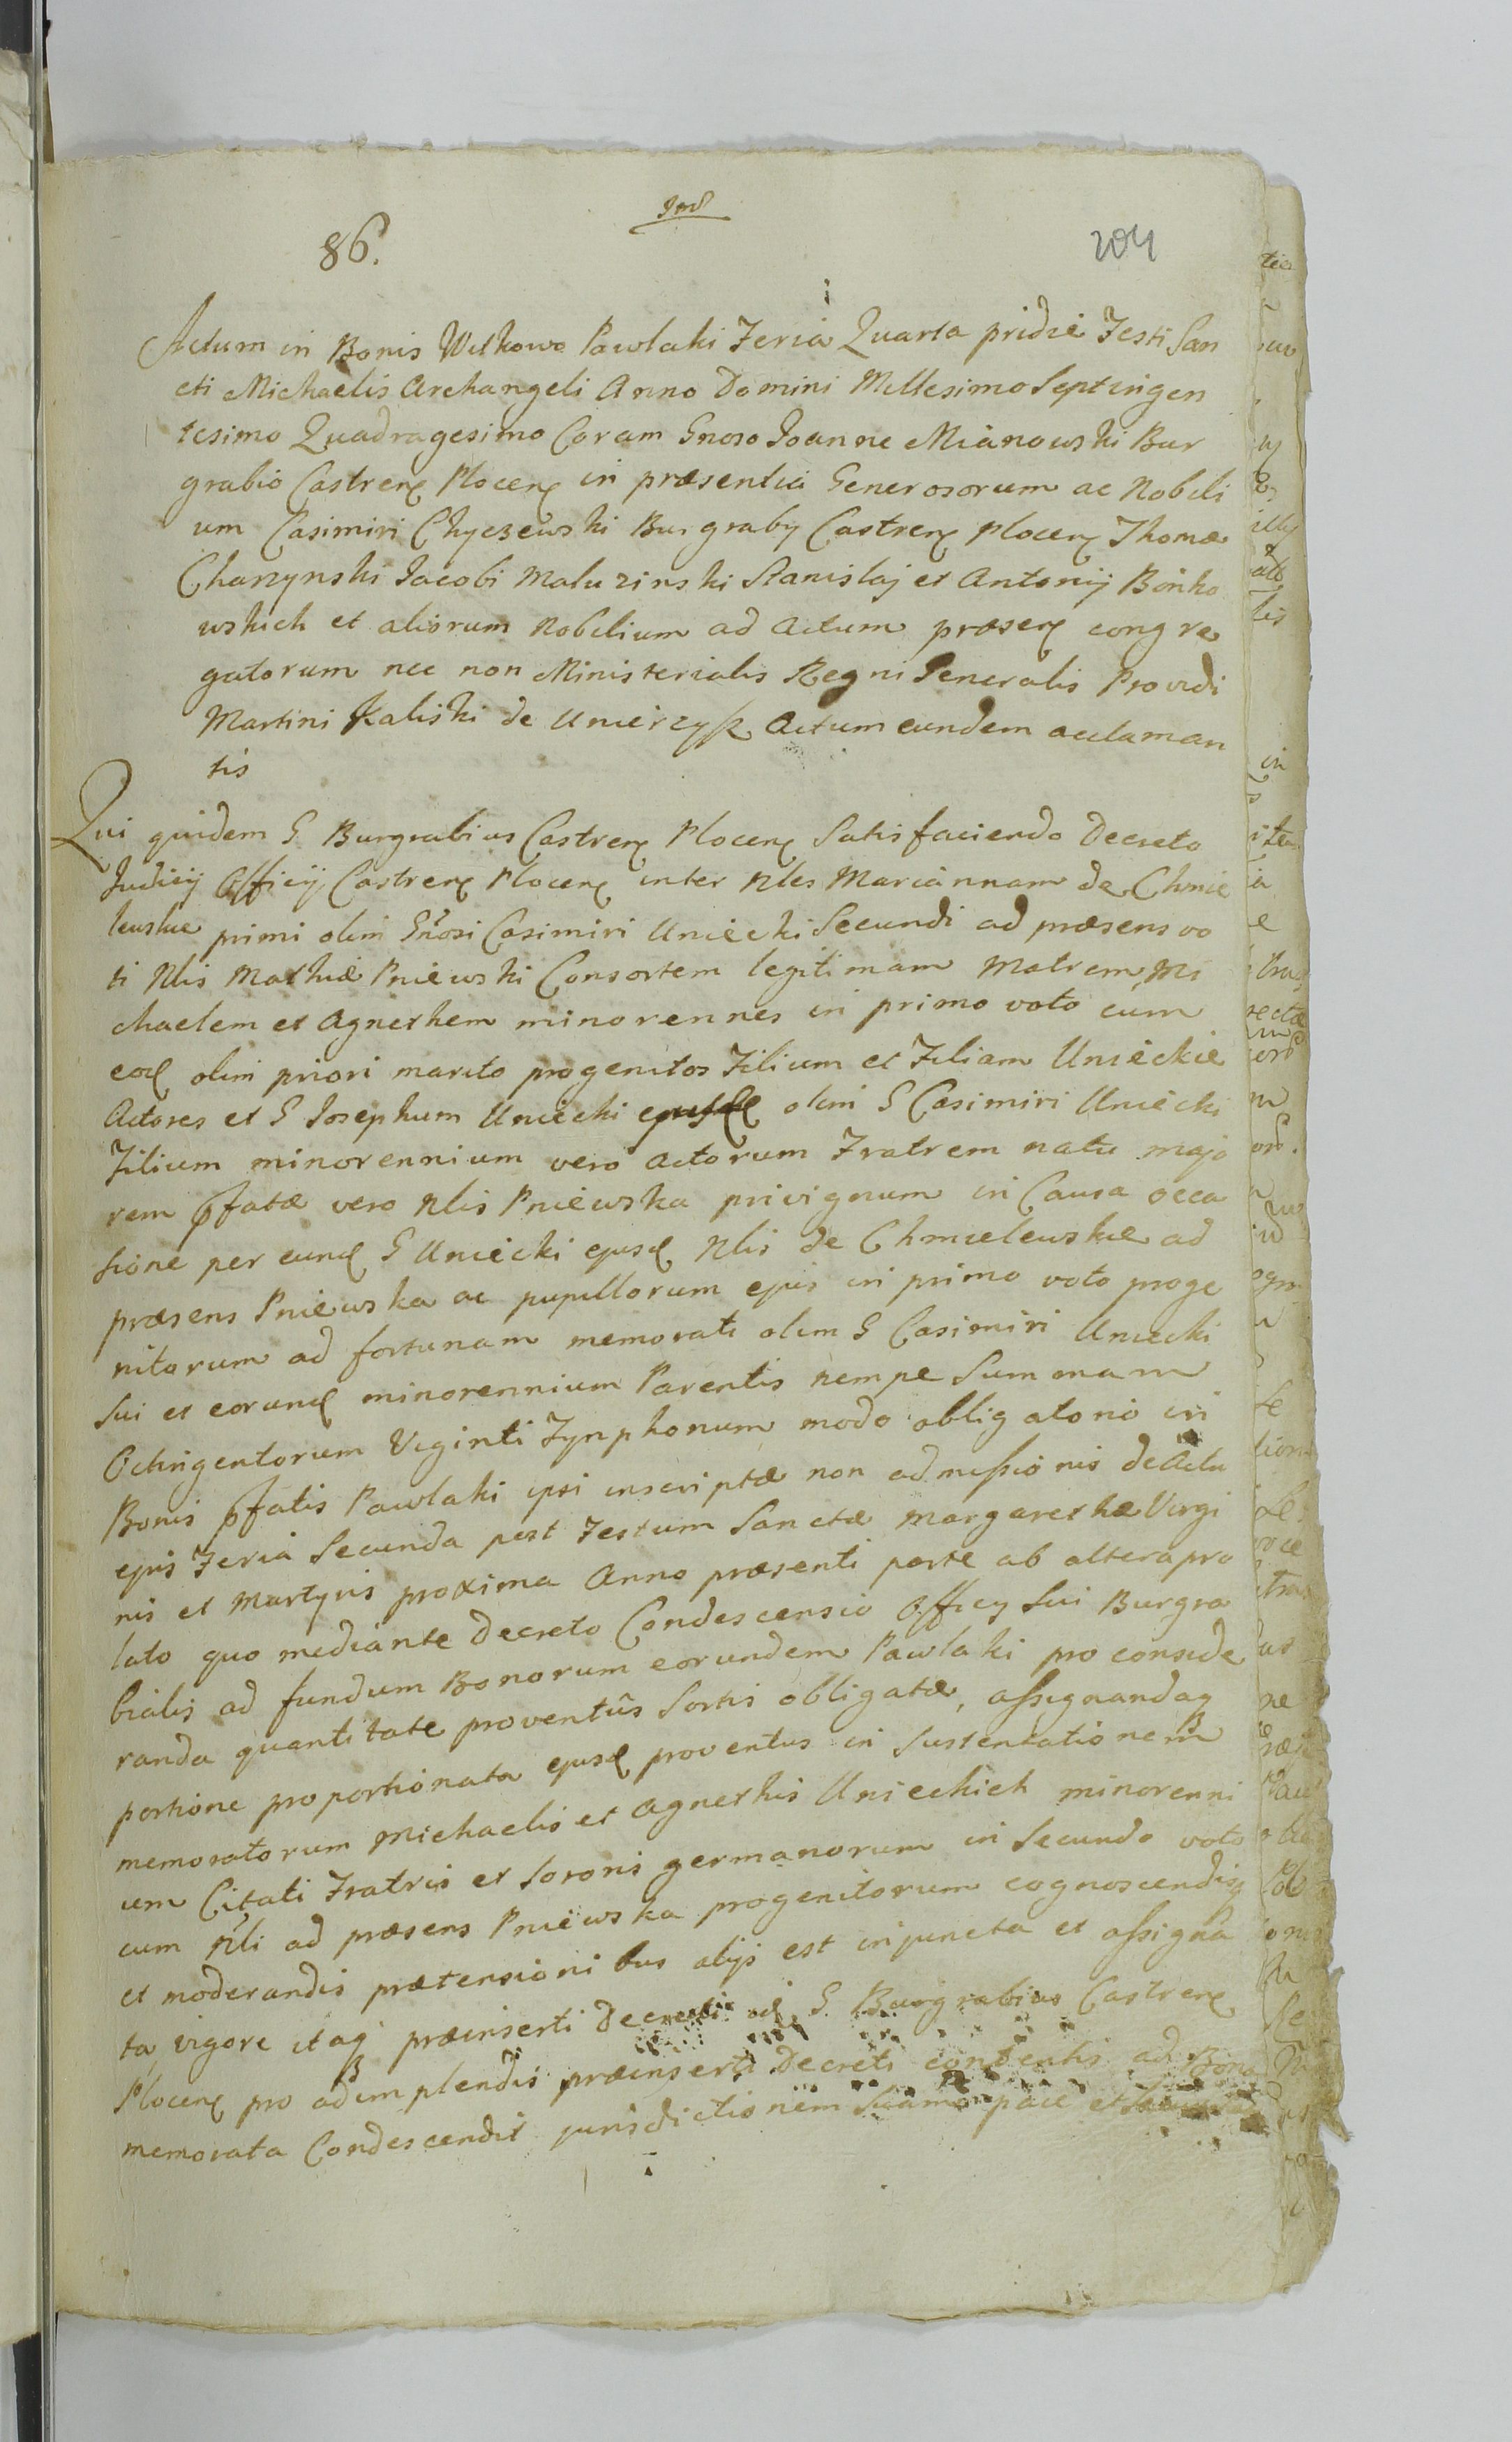 Ind
86.
204
Actum in Bonis Witkowo Pawlaki Feria Quarta pridie Festi San
cti Michaelis Archangeli Anno Domini Millesimo Septingen
tesimo Quadragesimo Coram Gnoso Joanne Mianowski Bur
grabio Castren Plocen in præsentia Generosorum ac Nobili
um Casimiri Chyczewski Burgraby Castren Plocen Thomæ
Charzynski Jacobi Maluzinski Stanislaj et Antonij Bońko
wskich et aliorum Nobilium ad Actum præsen congre
gatorum nec non Ministerialis Regni Generalis Providi
Martini Kaliski de Unierzysz Actum eundem acclaman
tis
Qui quidem G Burgrabius Castren Plocen Satisfaciendo Decreto
Judicij Officij Castren Plocen inter Nles Mariannam de Chmie
lewskie primi olim Gnosi Casimiri Uniecki Secundi ad præsens vo
ti Nlis Mathiæ Pniewski Consortem legitimam Matrem Mi
chaelem et Agnethem minorennes in primo voto cum
eod olim priori marito progenitos Filium et Filiam Unieckie
Actores et G Josephum Uniecki olim G Casimiri Uniecki
Filium minorennium vero Actorum Fratrem natu majo
rem pfatæ vero Nlis Pniewska privignum in Causa occa
sione per eund G Uniecki ejusd Nlis de Chmielewskie ad
præsens Pniewska ac pupillorum ejus in primo voto proge
nitorum ad fortunam memorati olim G Casimiri Uniecki
Sui et eorund minorennium Parentis nempe Summam
Octingentorum Viginti Fynphonum modo obligatorio in
Bonis pfatis Pawlaki ipsi inscriptæ non admissionis de Actu
ejus Feria Secunda post Festum Sanctæ Margarethæ Virgi
nis et Martyris proxima Anno præsenti parte ab altera pro
lato quo mediante Decreto Condescensio Officy Sui Burgra
bialis ad fundum Bonorum eorundem Pawlaki pro conside
randa quantitate proventûs Sortis obligatæ, assignandaq
portione proportionata ejusd proventus in Sustentationem
memoratorum Michaelis et Agnethis Unieckich minorenni
um Citati Fratris et Sororis germanorum in Secundo voto
cum Nli ad præsens Pniewska progenitorum cognoscendisq
et moderandis prætensionibus alijs est injuncta et assigna
ta vigore itaq præinserti Decreti G Burgrabius Castren
Plocen pro adimplendis præinserti Decreti contentis ad Bona
memorata Condescendit jurisdictionem Suam pace et